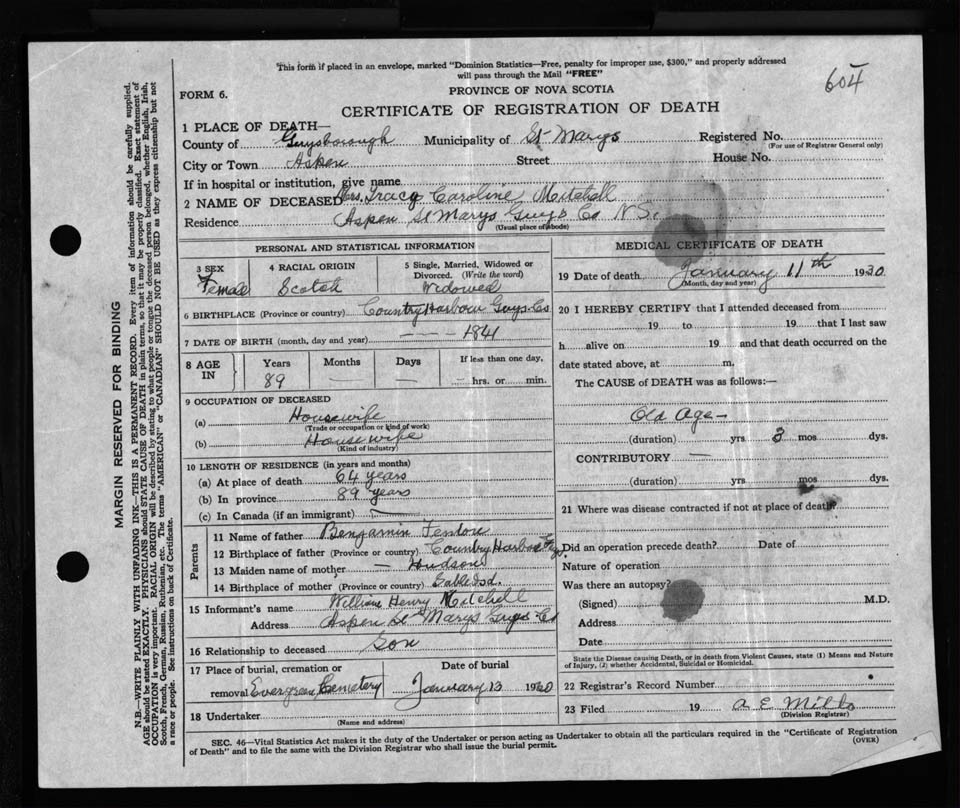 This form if placed in an envelope, marked "Dominion Statistics—Free, penalty for improper use, $300," and properly addressed
will pass through the Mail "FREE"
604
FORM 6.
PROVINCE OF NOVA SCOTIA
CERTIFICATE OF REGISTRATION OF DEATH
1 PLACE OF DEATH—
County of Guysborough Municipality of St Marys Registered No.
(For use of Registrar General only)
City or Town Aspen Street House No.
If in hospital or institution, give name
2 NAME OF DECEASED Mrs. Tracy Caroline Mitchell
Residence Aspen St Marys Guys Co N.S.
(Usual place of abode)
PERSONAL AND STATISTICAL INFORMATION
3 SEX Female
4 RACIAL ORIGIN Scotch
5 Single, Married, Widowed or Divorced. (Write the word) Widowed
6 BIRTHPLACE (Province or country) Country Harbour Guys. Co
7 DATE OF BIRTH (month, day and year) — — 1841
8 AGE IN Years 89 Months — Days — If less than one day, — hrs. or min.
9 OCCUPATION OF DECEASED
(a) Housewife
(Trade or occupation or kind of work)
(b) Housewife
(Kind of industry)
10 LENGTH OF RESIDENCE (in years and months)
(a) At place of death 64 years
(b) In province 89 years
(c) In Canada (if an immigrant) —
Parents
11 Name of father Benjamin Fenton
12 Birthplace of father (Province or country) Country Harbour
13 Maiden name of mother — Hudson
14 Birthplace of mother (Province or country) Sable Isd.
15 Informant's name William Henry Mitchell
Address Aspen St Marys Guys Co
16 Relationship to deceased Son
17 Place of burial, cremation or Date of burial
removal Evergreen Cemetery January 13 1930
18 Undertaker
(Name and address)
MEDICAL CERTIFICATE OF DEATH
19 Date of death January 11th 1930
(Month, day and year)
20 I HEREBY CERTIFY that I attended deceased from
19 to 19 that I last saw
h alive on 19 and that death occurred on the
date stated above, at m.
The CAUSE of DEATH was as follows:—
Old Age —
(duration) yrs 3 mos dys.
CONTRIBUTORY —
(duration) yrs mos dys.
21 Where was disease contracted if not at place of death?
Did an operation precede death? Date of
Nature of operation
Was there an autopsy?
(Signed) M.D.
Address
Date
State the Disease causing Death, or in death from Violent Causes, state (1) Means and Nature
of Injury, (2) whether Accidental, Suicidal or Homicidal.
22 Registrar's Record Number
23 Filed 19 A. E. Mills
(Division Registrar)
SEC. 46—Vital Statistics Act makes it the duty of the Undertaker or person acting as Undertaker to obtain all the particulars required in the "Certificate of Registration
of Death" and to file the same with the Division Registrar who shall issue the burial permit.
(OVER)
MARGIN RESERVED FOR BINDING
N.B.—WRITE PLAINLY WITH UNFADING INK—THIS IS A PERMANENT RECORD. Every item of information should be carefully supplied.
AGE should be stated EXACTLY. PHYSICIANS should STATE CAUSE OF DEATH in plain terms, so that it may be properly classified. Exact statement of
OCCUPATION is very important. RACIAL ORIGIN will be described by stating to what people or tongue the deceased person belonged, whether English, Irish,
Scotch, French, German, Russian, Ruthenian, etc. The terms "AMERICAN" or "CANADIAN" SHOULD NOT BE USED as they express citizenship but not
a race or people. See instructions on back of Certificate.